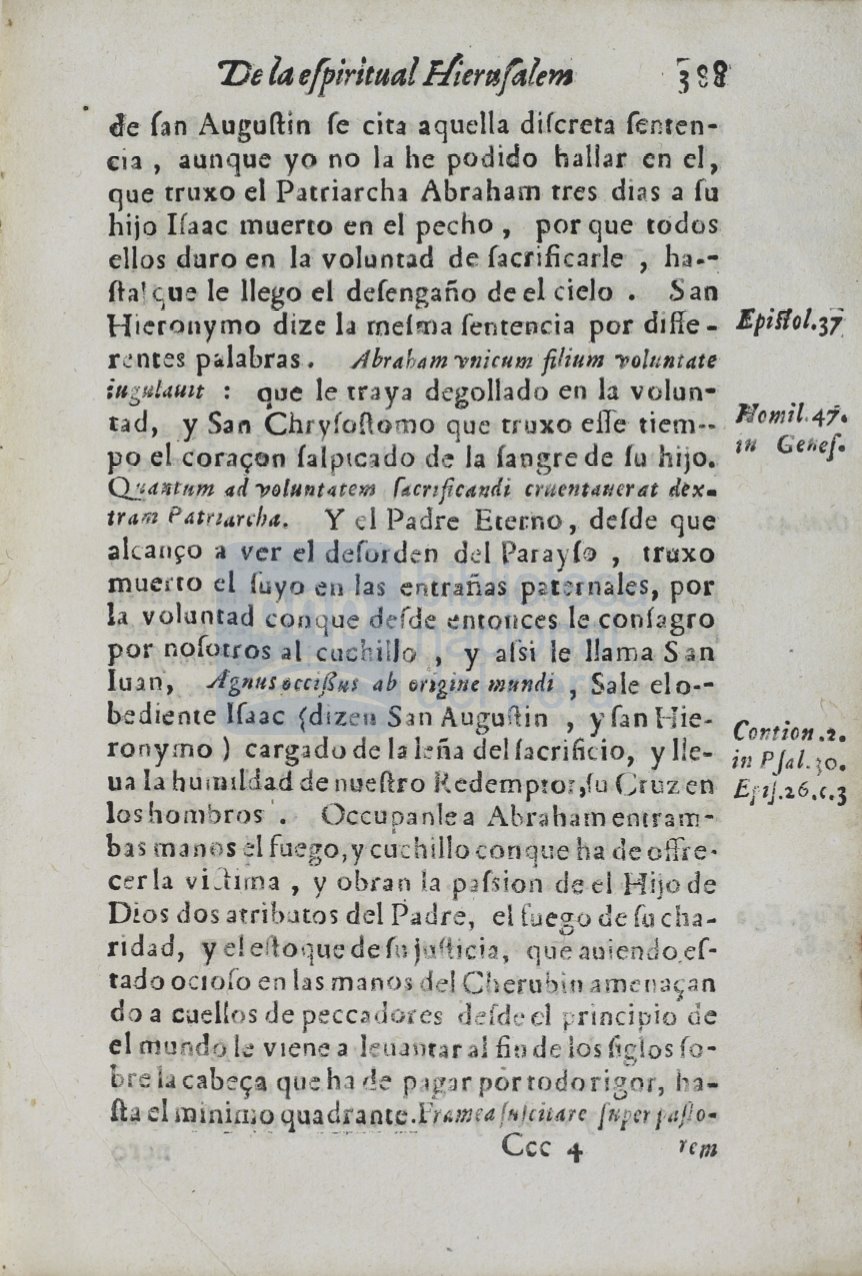 De la eſpiritual Hieruſalem 388
de ſan Auguſtin ſe cita aquella diſcreta ſenten-
cia , aunque yo no la he podido hallar en el,
que truxo el Patriarcha Abraham tres dias a ſu
hijo Iſaac muerto en el pecho , por que todos
ellos duro en la voluntad de ſacrificarle , ha--
ſta que le llego el deſengaño de el cielo . San
Hieronymo dize la meſma ſentencia por diffe-
rentes palabras. Abraham vnicum filium voluntate
iugulauit : que le traya degollado en la volun-
tad, y San Chryſoſtomo que truxo eſſe tiem--
po el coraçon ſalpicado de la ſangre de ſu hijo.
Quantum ad voluntatem ſacrificandi cruentauerat dex-
tram Patriarcha. Y el Padre Eterno, deſde que
alcanço a ver el deſorden del Parayſo , truxo
muerto el ſuyo en las entrañas paternales, por
la voluntad conque deſde entonces le conſagro
por noſotros al cuchillo , y aſsi le llama San
Iuan, Agnus occiſſus ab origine mundi , Sale el o--
bediente Iſaac (dizen San Auguſtin , y ſan Hie-
ronymo ) cargado de la leña del ſacrificio, y lle-
ua la humildad de nueſtro Redemptor, ſu Cruz en
los hombros . Occupanle a Abraham entram-
bas manos el fuego, y cuchillo con que ha de offre-
cer la victima , y obran la paſsion de el Hijo de
Dios dos atributos del Padre, el fuego de ſu cha-
ridad, y el eſtoque de ſu juſticia, que auiendo eſ-
tado ocioſo en las manos del Cherubin amenaçan
do a cuellos de peccadores deſde el principio de
el mundo le viene a leuantar al fin de los ſiglos ſo-
bre la cabeça que ha de pagar por todo rigor, ha-
ſta el minimo quadrante. Framea ſuſcitare ſuper paſto-
Ccc 4 rem
Epiſtol.37
Homil.47.
in Geneſ.
Contion.2.
in Pſal.30.
Epiſ.26.c.3